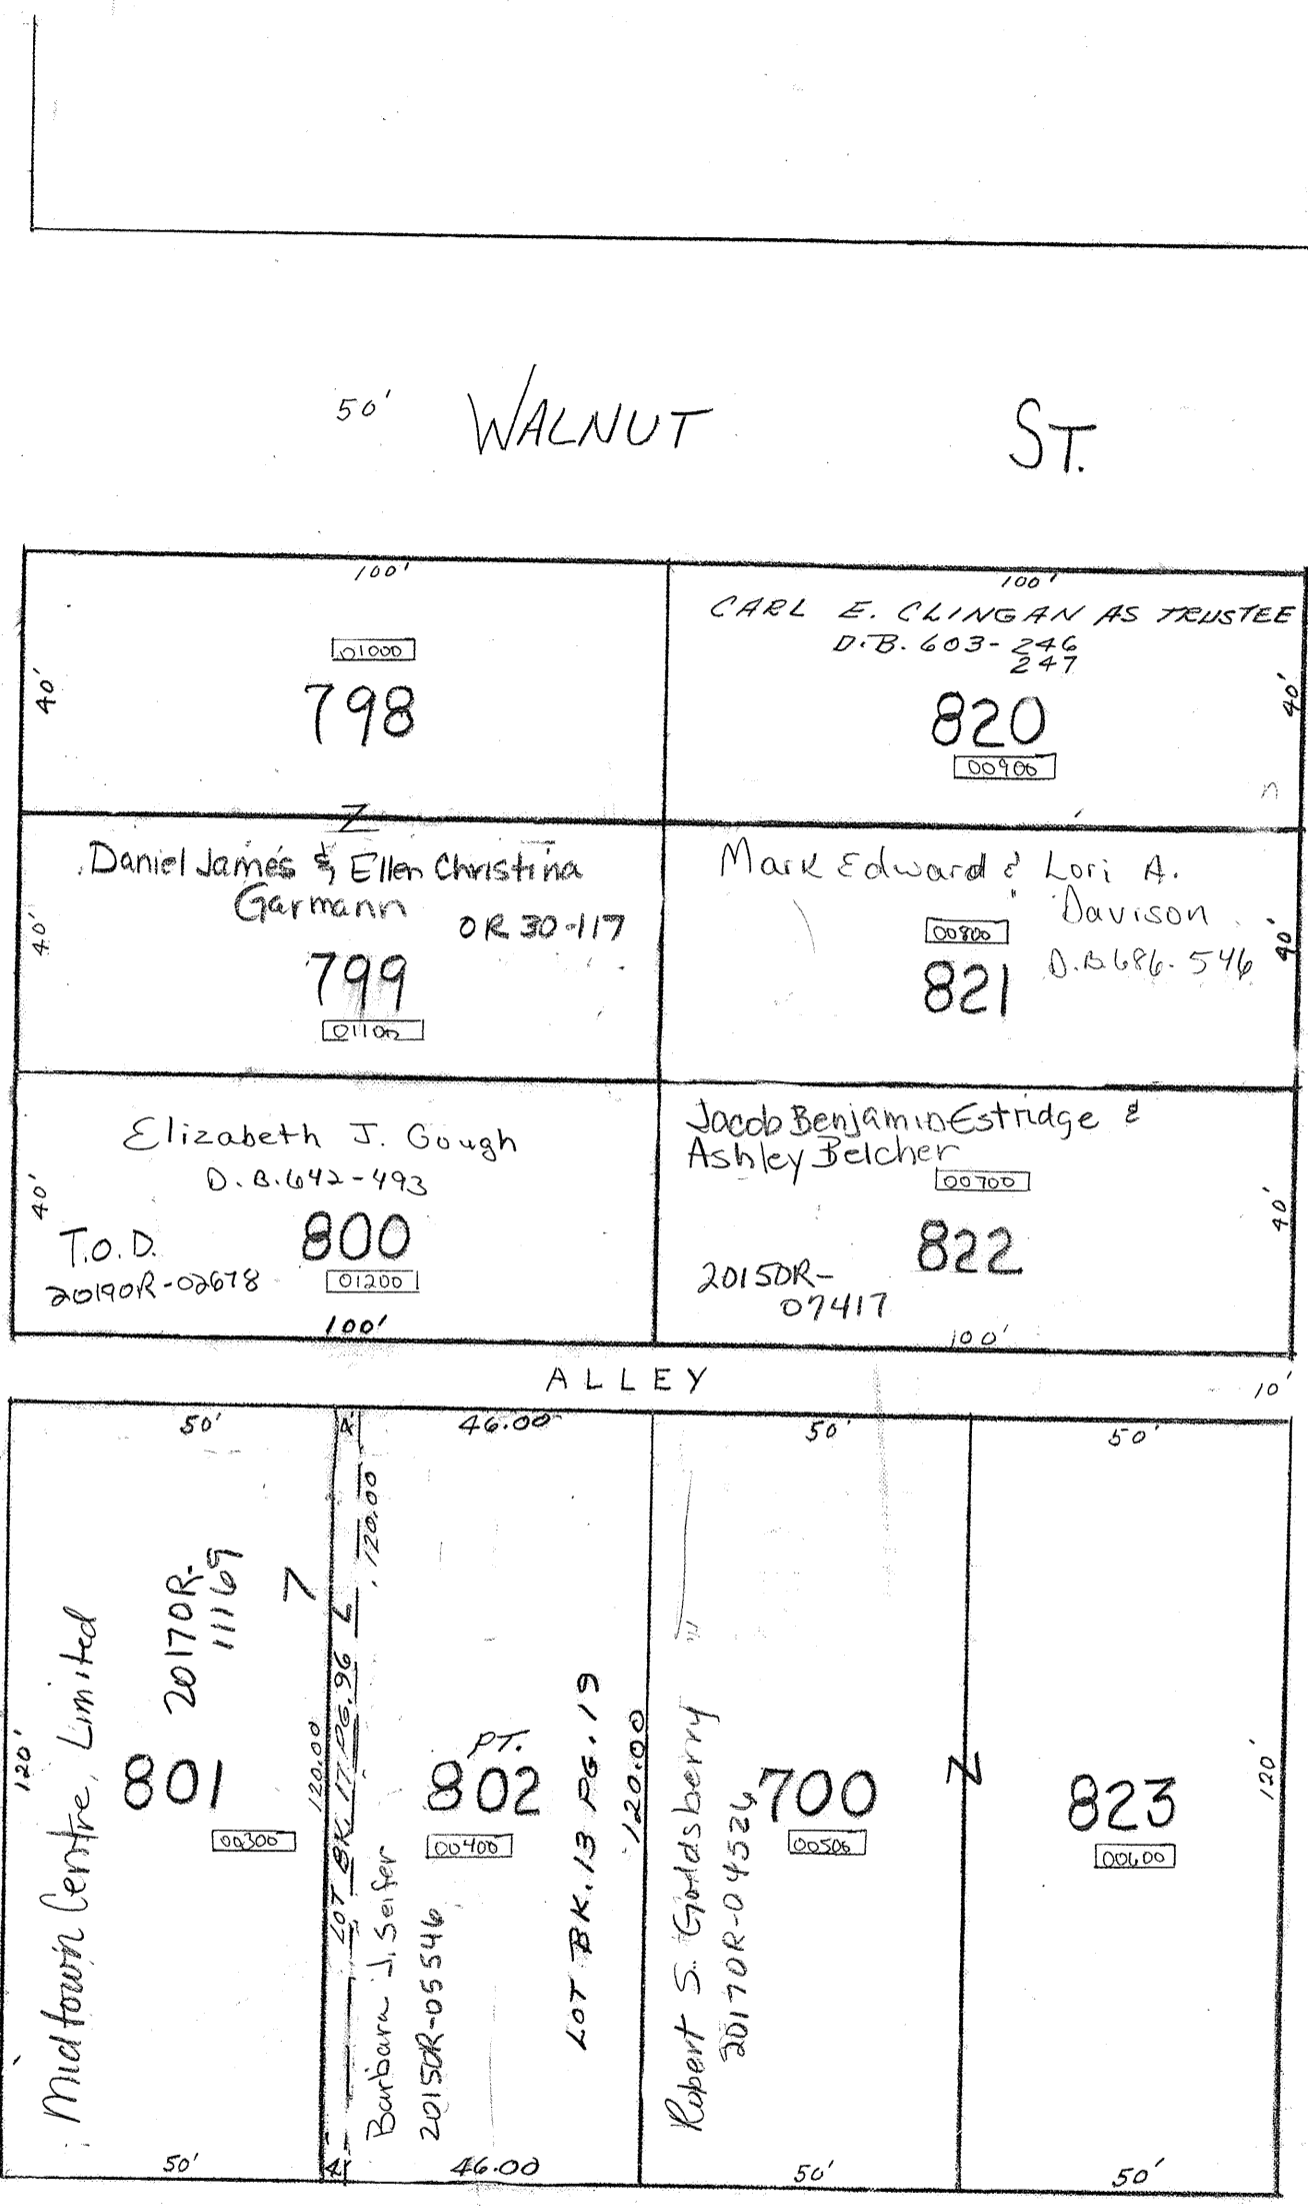 50' WALNUT ST.
100'
01000
798
40'
100'
CARL E. CLINGAN AS TRUSTEE
D.B. 603-246
247
820
00900
40'
Daniel James & Ellen Christina
Garmann
OR 30-117
799
01100
40'
Mark Edward & Lori A.
Davison
D.B. 686-546
00800
821
40'
Elizabeth J. Gough
D.B. 642-493
40'
T.O.D.
20190R-02678
800
01200
100'
Jacob Benjamin Estridge &
Ashley Belcher
00700
822
20150R-
07417
40'
100'
ALLEY
10'
50'
4'
46.00
50'
50'
120'
Midtown Centre, Limited
20170R-
11169
801
00300
120.00
LOT BK. 17 PG. 96
120.00
Barbara J. Seifer
20150R-05546
PT.
802
00400
LOT BK. 13 PG. 19
120.00
Robert S. Goldsberry
20170R-04526
700
00500
823
00600
120'
50'
4'
46.00
50'
50'